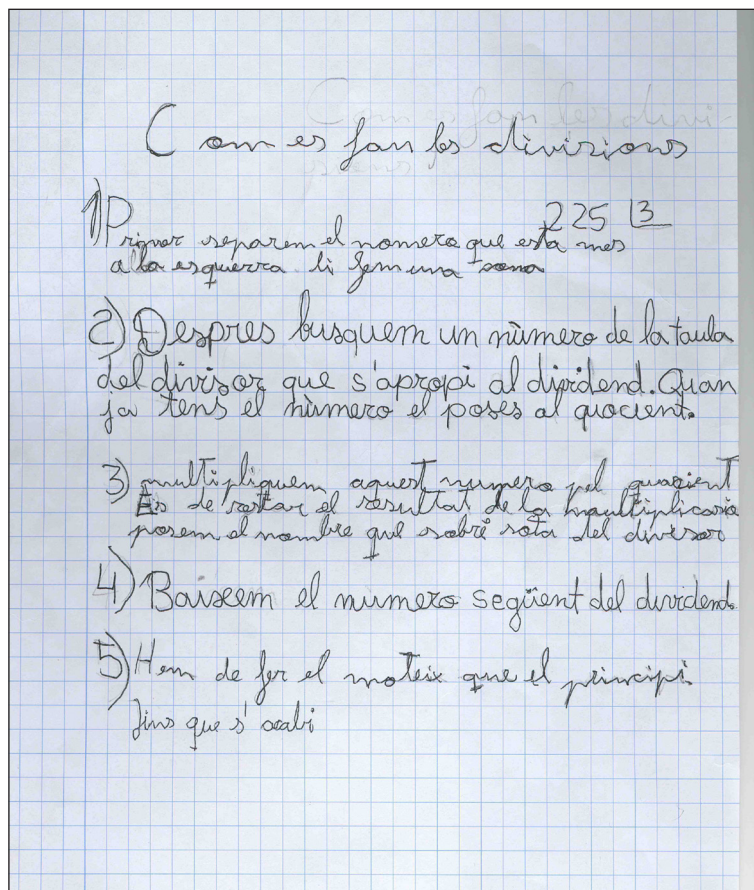 Com es fan les divisions
225 3
1) Primer separem el nomero que esta mes
a la esquerra li fem una
2) Despres busquem un número de la taula
del divisor que s'apropi al dividend. Quan
ja tens el número el poses al quocient.
3) multipliquem aquest numero pel quozient
Es de restar el resultat de la multiplicasio
posem el nombre que sobri sota del divisor
4) Baixem el numero següent del dividend.
5) Hem de fer el mateix que el principi
fins que s'acabi